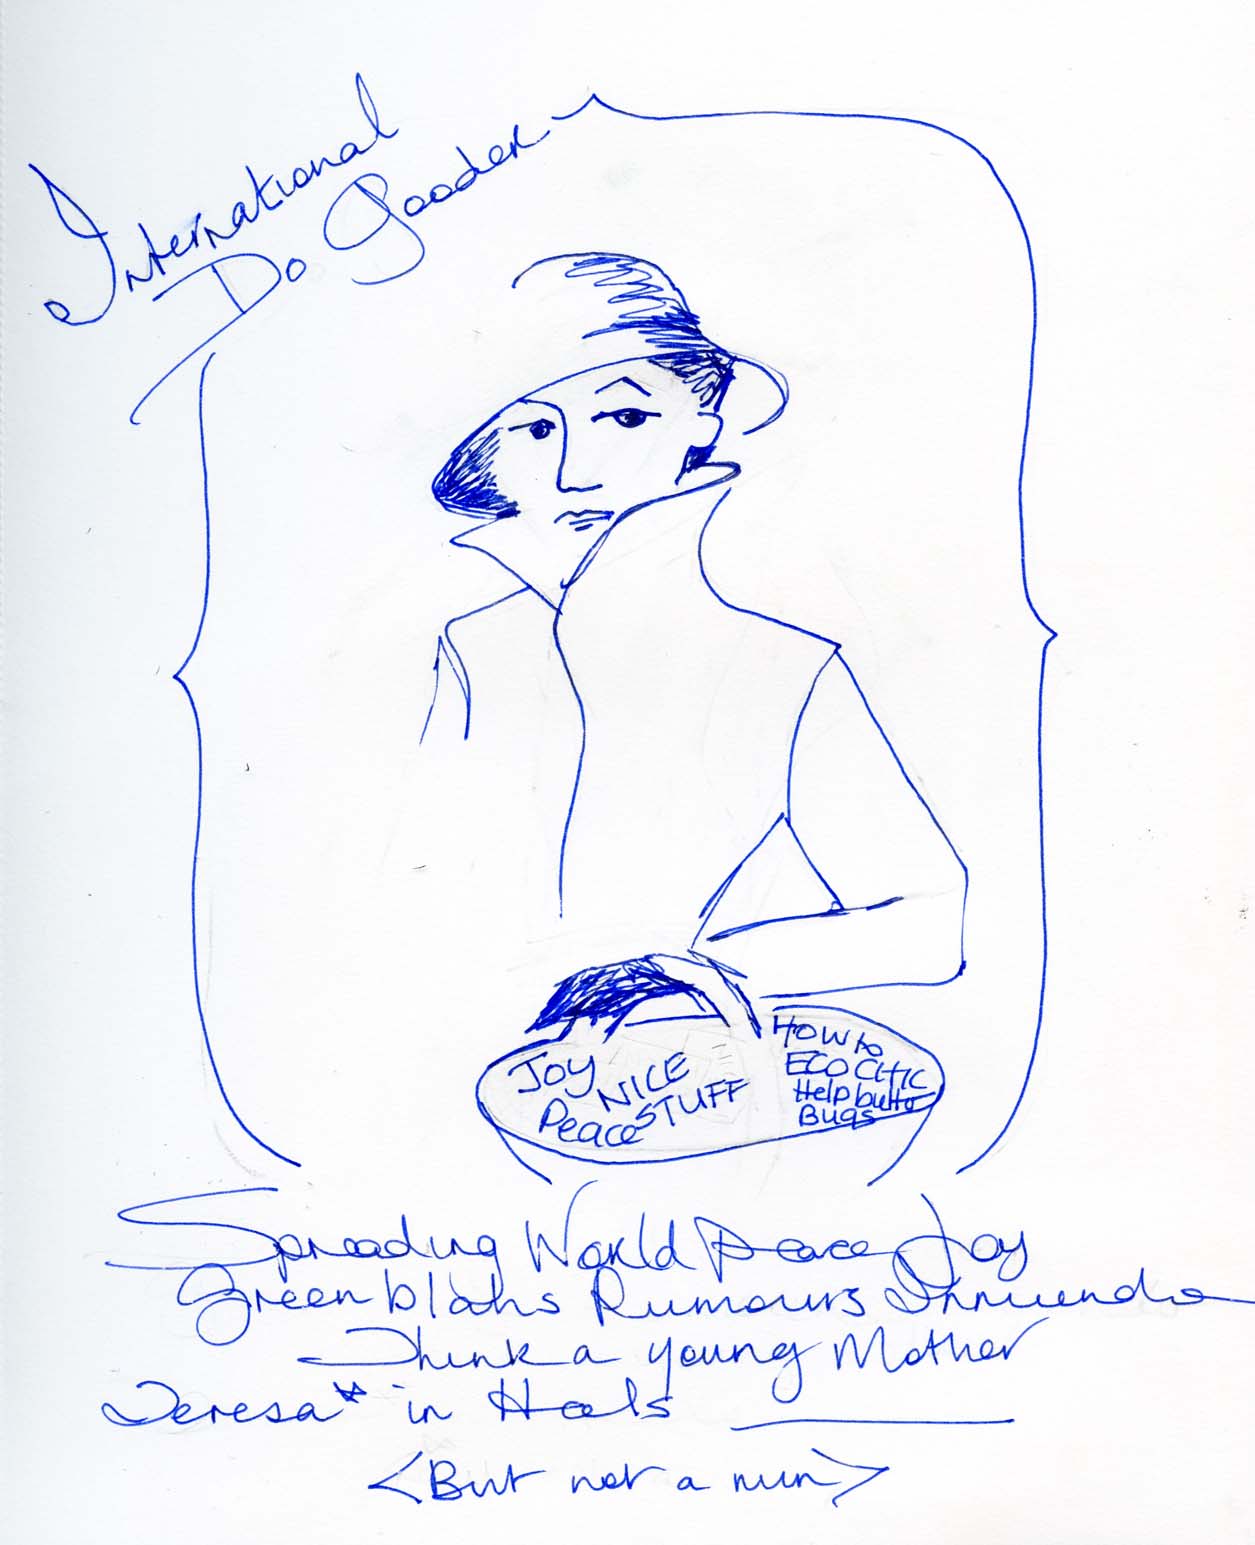 International
Do Gooder
Joy
NICE
Peace STUFF
How to
ECO CHIC
Help butto
Bugs
Spreading World Peace Joy
Green blahs Rumours Innuendo
Think a young Mother
Teresa* in Heels
<But not a nun>